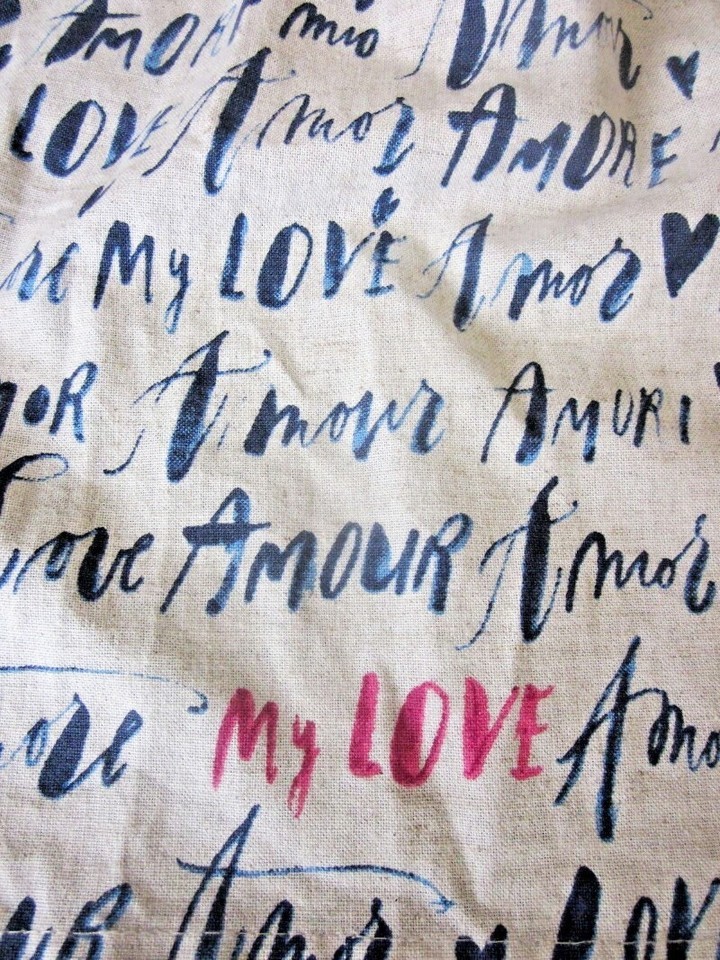 AMOR mio Amor
LOVE Amor AMORE
My LOVE Amor
Amour AMORI
Love AMOUR Amor
My LOVE
Amor